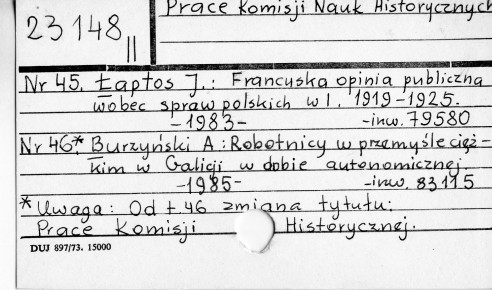 Prace Komisji Nauk Historycznych
23148 II
Nr 45. Łaptos J.: Francuska opinia publiczna
wobec spraw polskich w l. 1919-1925.
-1983- -inw. 79580
Nr 46*. Burzyński A: Robotnicy w przemyśle cięż-
kim w Galicji w dobie autonomicznej.
-1985- -inw. 83115
* Uwaga: Od t. 46 zmiana tytułu:
Prace Komisji Historycznej.
DUJ 897/73. 15000